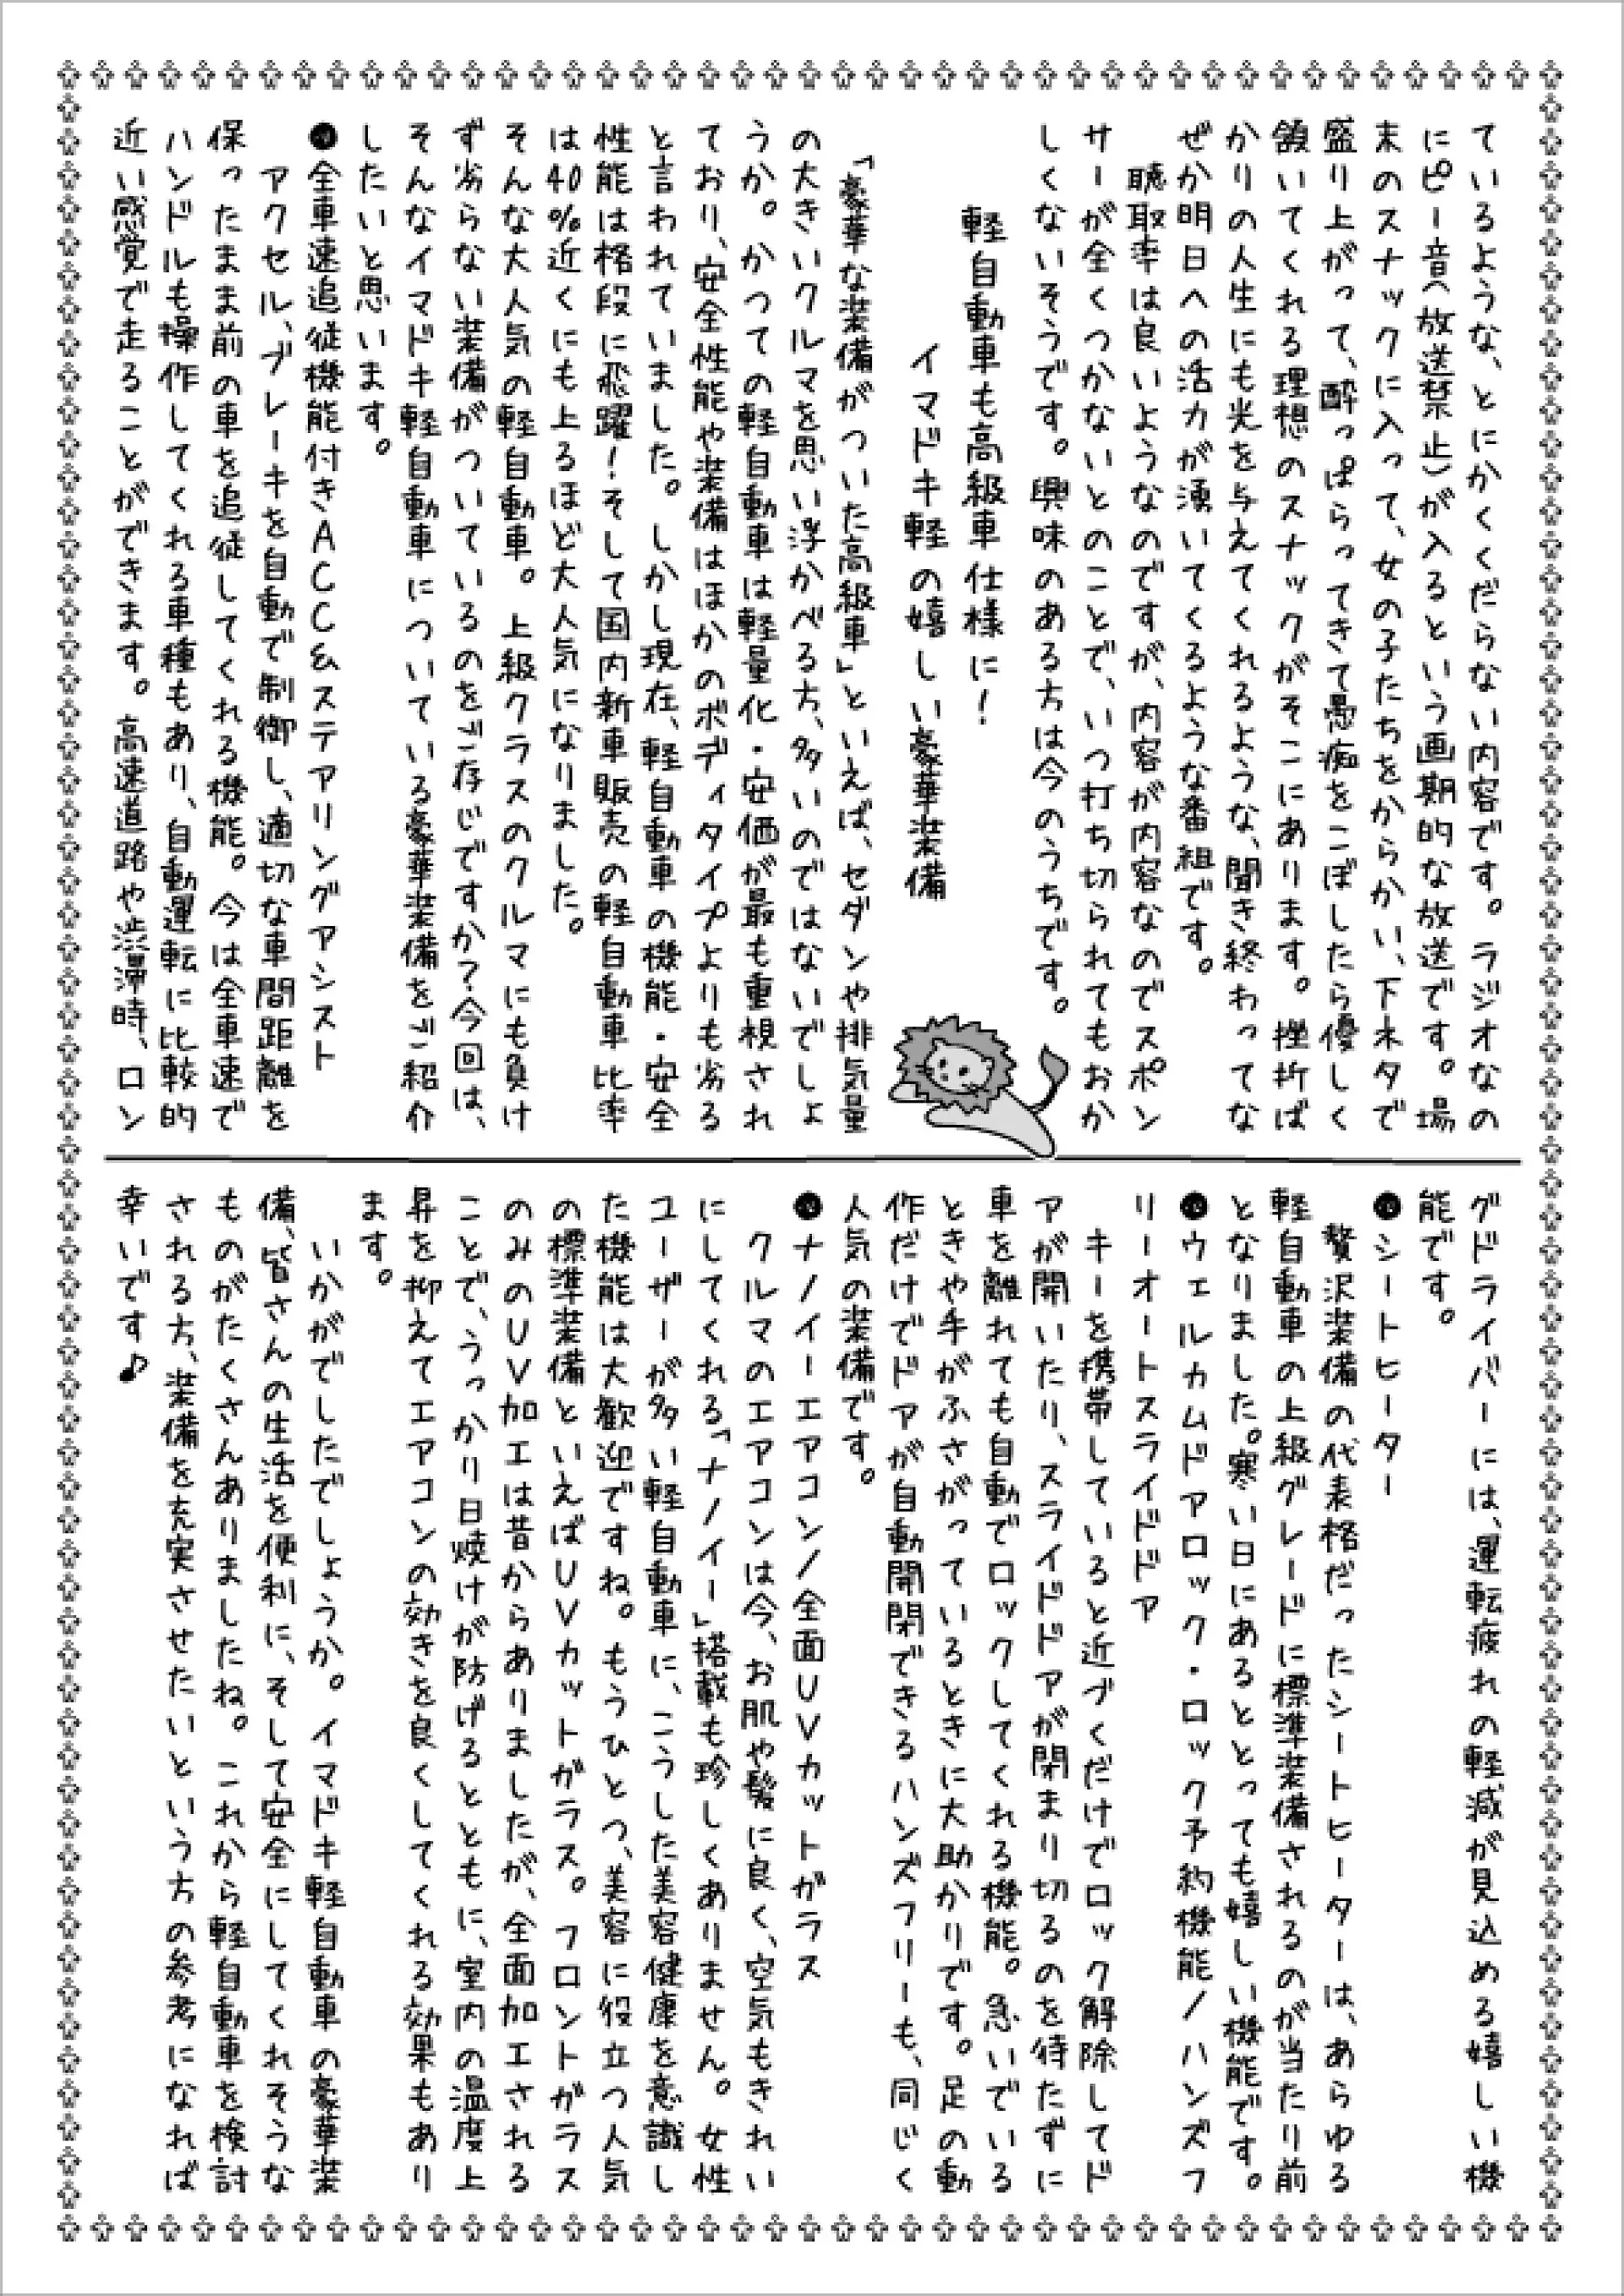 ているような、とにかくくだらない内容です。ラジオなの
にピー音（放送禁止）が入るという画期的な放送です。場
末のスナックに入って、女の子たちをからかい、下ネタで
盛り上がって、酔っぱらってきて愚痴をこぼしたら優しく
頷いてくれる理想のスナックがそこにあります。挫折ば
かりの人生にも光を与えてくれるような、聞き終わってな
ぜか明日への活力が湧いてくるような番組です。
聴取率は良いようなのですが、内容が内容なのでスポン
サーが全くつかないとのことで、いつ打ち切られてもおか
しくないそうです。興味のある方は今のうちです。
軽自動車も高級車仕様に！
イマドキ軽の嬉しい豪華装備
「豪華な装備がついた高級車」といえば、セダンや排気量
の大きいクルマを思い浮かべる方、多いのではないでしょ
うか。かつての軽自動車は軽量化・安価が最も重視され
ており、安全性能や装備はほかのボディタイプよりも劣る
と言われていました。しかし現在、軽自動車の機能・安全
性能は格段に飛躍！そして国内新車販売の軽自動車比率
は40％近くにも上るほど大人気になりました。
そんな大人気の軽自動車。上級クラスのクルマにも負け
ず劣らない装備がついているのをご存じですか？今回は、
そんなイマドキ軽自動車についている豪華装備をご紹介
したいと思います。
●全車速追従機能付きＡＣＣ＆ステアリングアシスト
アクセル、ブレーキを自動で制御し、適切な車間距離を
保ったまま前の車を追従してくれる機能。今は全車速で
ハンドルも操作してくれる車種もあり、自動運転に比較的
近い感覚で走ることができます。高速道路や渋滞時、ロン
グドライバーには、運転疲れの軽減が見込める嬉しい機
能です。
●シートヒーター
贅沢装備の代表格だったシートヒーターは、あらゆる
軽自動車の上級グレードに標準装備されるのが当たり前
となりました。寒い日にあるととっても嬉しい機能です。
●ウェルカムドアロック・ロック予約機能／ハンズフ
リーオートスライドドア
キーを携帯していると近づくだけでロック解除してド
アが開いたり、スライドドアが閉まり切るのを待たずに
車を離れても自動でロックしてくれる機能。急いでいる
ときや手がふさがっているときに大助かりです。足の動
作だけでドアが自動開閉できるハンズフリーも、同じく
人気の装備です。
●ナノイーエアコン／全面ＵＶカットガラス
クルマのエアコンは今、お肌や髪に良く、空気もきれい
にしてくれる「ナノイー」搭載も珍しくありません。女性
ユーザーが多い軽自動車に、こうした美容健康を意識し
た機能は大歓迎ですね。もうひとつ、美容に役立つ人気
の標準装備といえばＵＶカットガラス。フロントガラス
のみのＵＶ加工は昔からありましたが、全面加工される
ことで、うっかり日焼けが防げるとともに、室内の温度上
昇を抑えてエアコンの効きを良くしてくれる効果もあり
ます。
いかがでしたでしょうか。イマドキ軽自動車の豪華装
備、皆さんの生活を便利に、そして安全にしてくれそうな
ものがたくさんありましたね。これから軽自動車を検討
される方、装備を充実させたいという方の参考になれば
幸いです♪